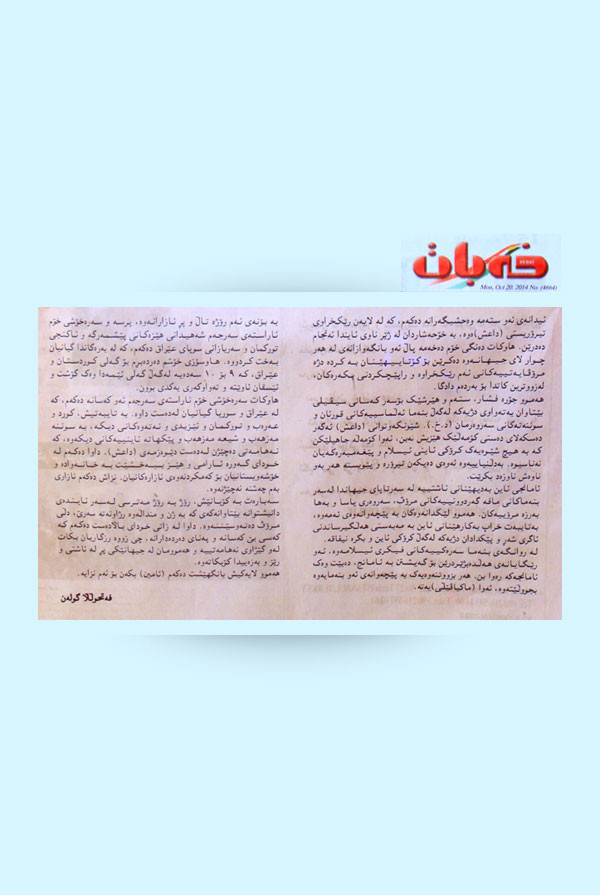 خەبات
XEBAT
Mon, Oct 20. 2014 No. (4664)
ئیدانەی ئەو ستەمە وەحشیگەرانە دەکەم، کە لە لایەن رێکخراوی
تیرۆریستی (داعش)ەوە، بە خۆحەشاردان لە ژێر ناوی ئایندا ئەنجام
دەدرێن. هاوکات دەنگی خۆم دەخەمە پاڵ ئەو بانگەوازانەی لە هەر
چوار لای جیهانەوە دەکرێن بۆ کۆتاییهێنان بە کردە دژە
مرۆڤایەتییەکانی ئەم رێکخراوە و راپێچکردنی پکەرەکان،
لە زووترین کاتدا بۆ بەردەم دادگا.
هەموو جۆرە فشار، ستەم و هێرشێک بۆسەر کەسانی سیڤیلی
بێتاوان بەتەواوی دژیەکە لەگەڵ بنەما ئەڵماسییەکانی قورئان و
سوننەتەکانی سەروەرمان (د.خ.). شوێنکەوتوانی (داعش) ئەگەر
دەسکەلای دەستی کۆمەڵێک هێزیش نەبن، ئەوا کۆمەڵە جاهیلێکن
کە بە هیچ شێوەیەک کرۆکی ئاینی ئیسلام و پێغەمبەرەکەیان
نەناسیوە. بەدڵنیاییەوە ئەوەی دەیکەن تیرۆرە و پێویستە هەر بەو
ناوەش ناوزەد بکرێت.
ئامانجی ئاین بەدیهێنانی ئاشتییە لە سەرتاپای جیهاندا لەسەر
بنەماکانی مافە گەردوونییەکانی مرۆڤ، سەروەری یاسا و بەها
بەرزە مرۆییەکان. هەموو لێکدانەوەکان بە پێچەوانەوەی ئەمەوە،
بەتایبەت خراپ بەکارهێنانی ئاین بە مەبەستی هەڵگیرساندنی
ئاگری شەڕ و پێکدادان دژیەکە لەگەڵ کرۆکی ئاین و بگرە نیفاقە.
لە روانگەی بنەما سەرەکییەکانی فیکری ئیسلامەوە، ئەو
رێگایانەی هەڵدەبژێردرێن بۆ گەیشتن بە ئامانج، دەبێت وەک
ئامانجەکە رەوا بن. هەر بزووتنەوەیەک بە پێچەوانەی ئەو بنەمایەوە
بجووڵێتەوە، ئەوا (ماکیاڤێلی)یەنە.
بە بۆنەی ئەم رۆژە تاڵ و پڕ ئازارانەوە، پرسە و سەرەخۆشی خۆم
ئاراستەی سەرجەم شەهیدانی هێزەکانی پێشمەرگە و ئاکنجی
تورکمان و سەربازانی سوپای عێراق دەکەم، کە لە بەرەکاندا گیانیان
بەخت کردووە. هاوسۆزی خۆشم دەردەبڕم بۆ گەلی کوردستان و
عێراق، کە ٩ بۆ ١٠ سەدەیە لەگەڵ گەلی ئێمەدا وەک گۆشت و
ئێسقان ئاوێتە و تەواوکەری یەکدی بوون.
هاوکات سەرەخۆشی خۆم ئاراستەی سەرجەم ئەو کەسانە دەکەم، کە
لە عێراق و سوریا گیانیان لەدەست داوە. بە تایبەتیش، کورد و
عەرەب و تورکمان و ئێزیدی و نەتەوەکانی دیکە، بە سوننە
مەزهەب و شیعە مەزهەب و پێکهاتە ئاینییەکانی دیکەوە، کە
نەهامەتی دەچێژن لەدەست دێوەزمەی (داعش). داوا دەکەم لە
خودای گەورە ئارامی و هێز ببەخشێت بە خانەوادە و
خۆشەویستانیان بۆ کەمکردنەوەی ئازارەکانیان. نزاش دەکەم ئازاری
بەم چەشنە نەچێژنەوە.
سەبارەت بە کۆبانێش، رۆژ بە رۆژ مەترسی لەسەر ئایندەی
دانیشتوانە بێتاوانەکەی کە بە ژن و منداڵەوە رژاونەتە سەرێ، دڵی
مرۆڤ دەنەوسێننەوە. داوا لە زاتی خودای باڵادەست دەکەم کە
کەسی بێ کەسانە و پەنای دەردەدارانە، چی زووە رزگاریان بکات
لەو گێژاوی نەهامەتییە و هەموومان لە جیهانێکی پڕ لە ئاشتی و
رێز و بەزەییدا کۆبکاتەوە.
هەموو لایەکیش بانگهێشت دەکەم (ئامین) بکەن بۆ ئەم نزایە.
فەتحوڵڵا گولەن